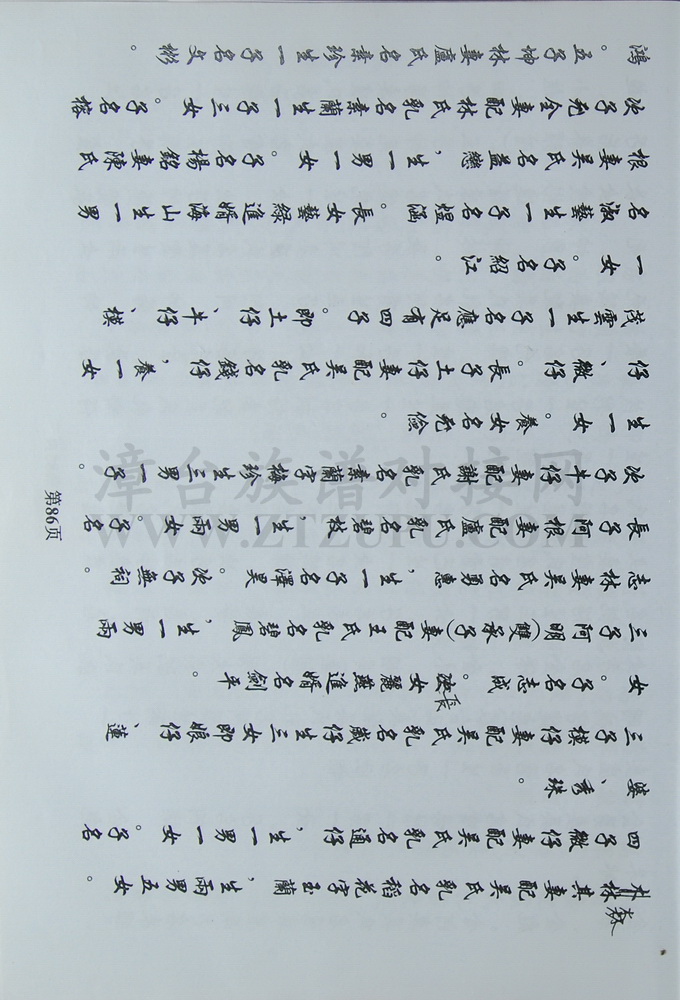 鴻。五子坤林妻盧氏名素珍生一子名文彬。
次子允全妻配林氏乳名素蘭生一子三女。子名榕
根妻吳氏名益戀,生一男一女。子名楊銘妻陳氏
名淑藝生一子名煜涵。長女藝綠進婿海山生一男
一女。子名紹江。
茂雲生一子名應足有四子。即土仔、牛仔、模
仔、微仔。長子土仔妻配吳氏乳名錢仔,養一女
生一女。養女名允儉。
次子牛仔妻配謝氏乳名素蘭字梅珍生三男一子。
長子阿根妻配盧氏乳名碧枝,生一男兩女。子名
志林妻吳氏名勇惠,生一子名澤昊。次子無祠。
三子阿明(雙承子)妻配王氏乳名碧鳳,生一男兩
女。子名志成。長女麗燕進婿名劍平。
三子模仔妻配吳氏乳名藏仔生三女即娘仔、蓮
葉、秀珠。
四子微仔妻配吳氏乳名通仔,生一男一女。子名
森其妻配吳氏乳名稻花字玉蘭,生兩男五女。
第86页
漳台族谱对接网
WWW.ZTZUPU.COM